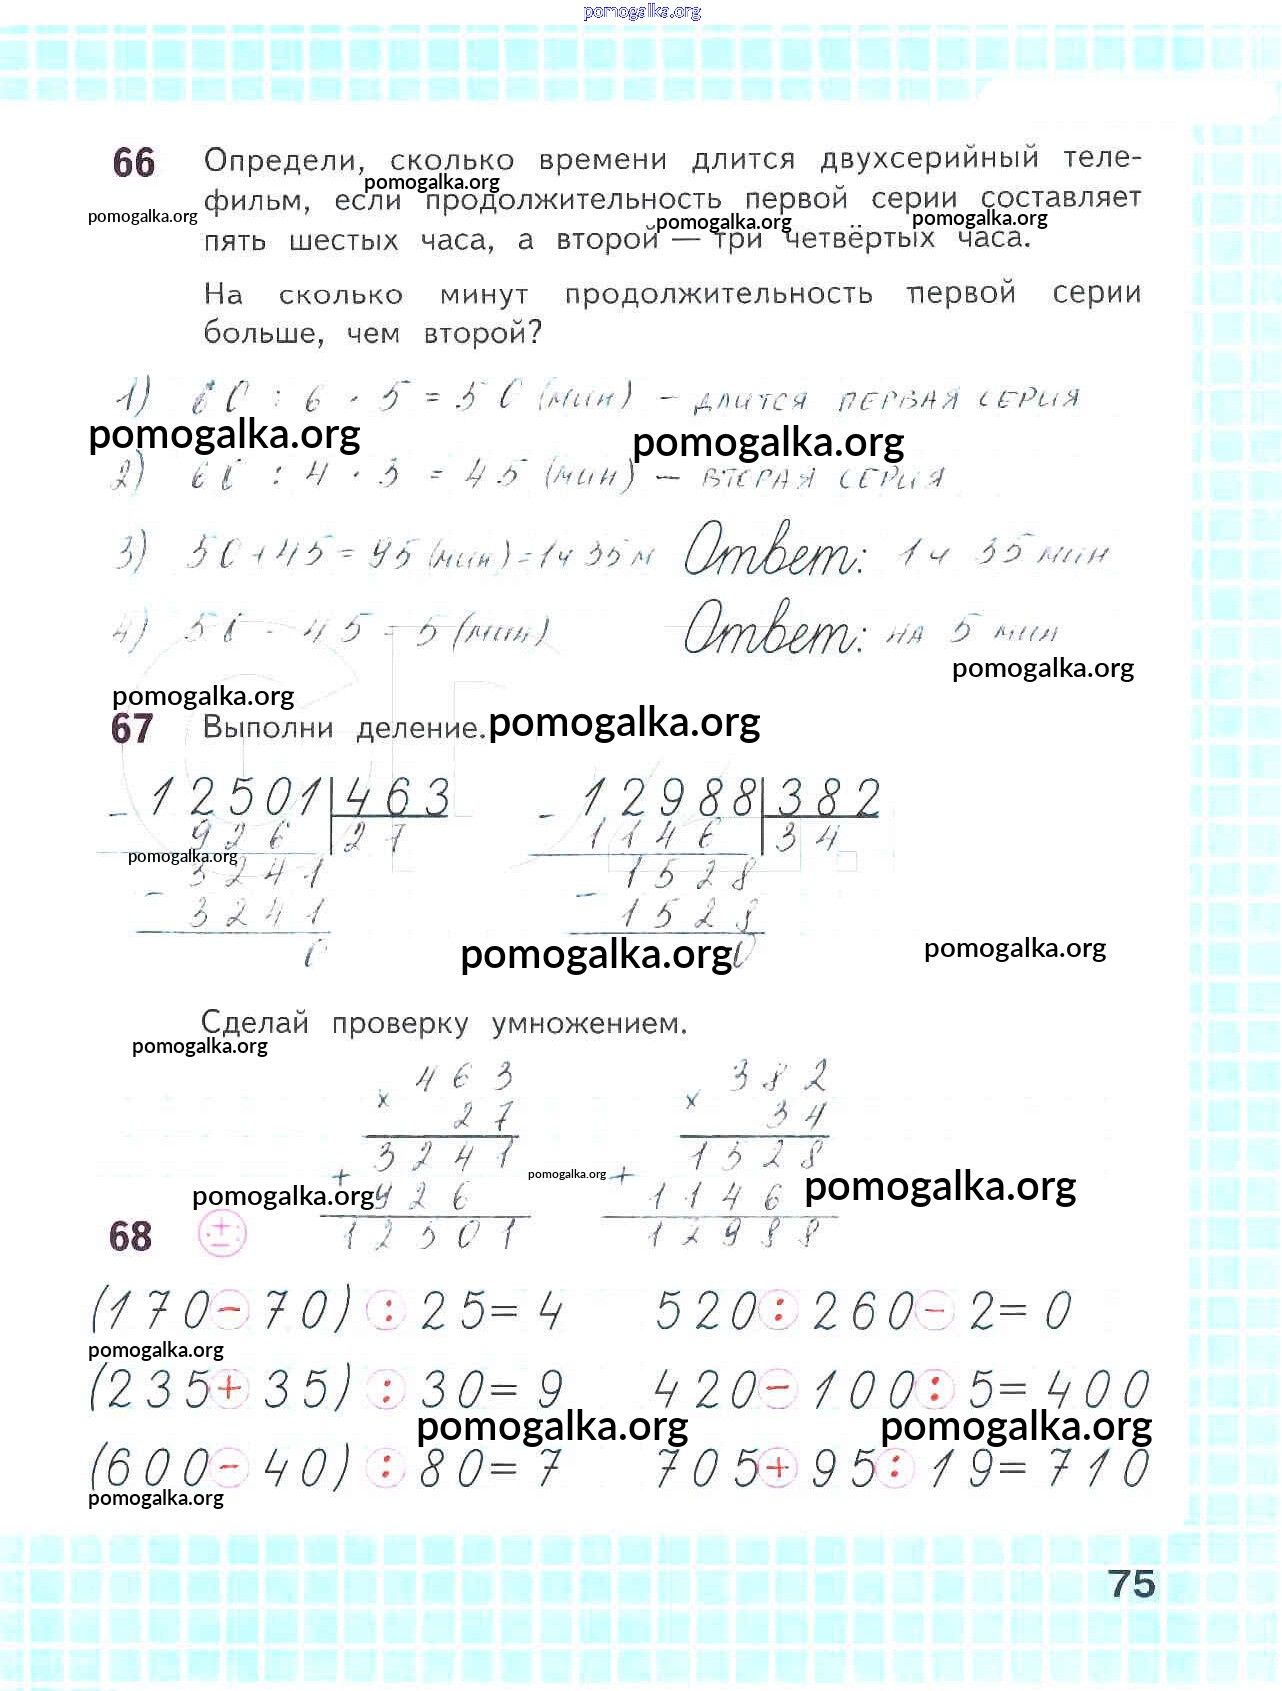 pomogalka.org
66 Определи, сколько времени длится двухсерийный теле-
pomogalka.org
фильм, если продолжительность первой серии составляет
pomogalka.org pomogalka.org pomogalka.org
пять шестых часа, а второй — три четвёртых часа.
На сколько минут продолжительность первой серии
больше, чем второй?
1) 60 : 6 · 5 = 50 (мин) – длится первая серия
pomogalka.org pomogalka.org
2) 60 : 4 · 3 = 45 (мин) – вторая серия
3) 50 + 45 = 95 (мин) = 1ч 35м Ответ: 1ч 35 мин
4) 50 - 45 = 5 (мин) Ответ: на 5 мин
pomogalka.org
pomogalka.org
67 Выполни деление. pomogalka.org
- 12501 463 - 12988 382
926 27 1146 34
pomogalka.org
3241 1528
- 3241 - 1528
0 0
pomogalka.org pomogalka.org
Сделай проверку умножением.
pomogalka.org
463 382
× 27 × 34
3241 1528
pomogalka.org
+ 926 + 1146
pomogalka.org pomogalka.org
12501 12988
68 ±
(170 - 70) : 25 = 4 520 : 260 - 2 = 0
pomogalka.org
(235 + 35) : 30 = 9 420 - 100 : 5 = 400
pomogalka.org pomogalka.org
(600 - 40) : 80 = 7 705 + 95 : 19 = 710
pomogalka.org
75